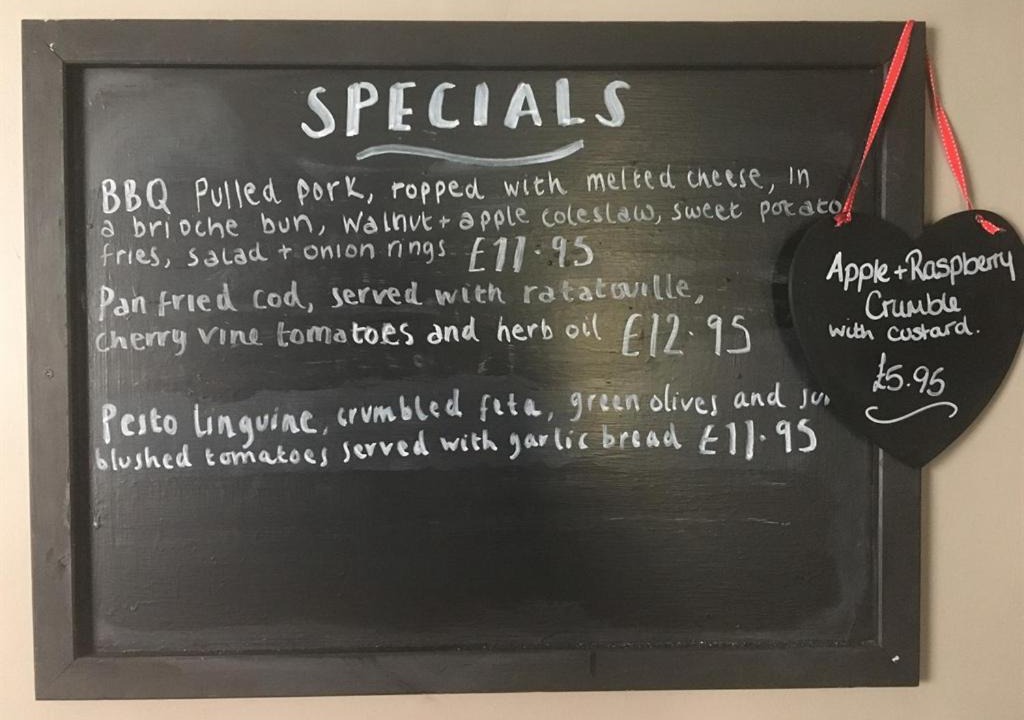 SPECIALS
BBQ Pulled pork, topped with melted cheese, in
a brioche bun, walnut + apple coleslaw, sweet potato
fries, salad + onion rings £11.95
Pan fried cod, served with ratatouille,
cherry vine tomatoes and herb oil £12.95
Pesto linguine, crumbled feta, green olives and
blushed tomatoes served with garlic bread £11.95
Apple + Raspberry
Crumble
with custard.
£5.95